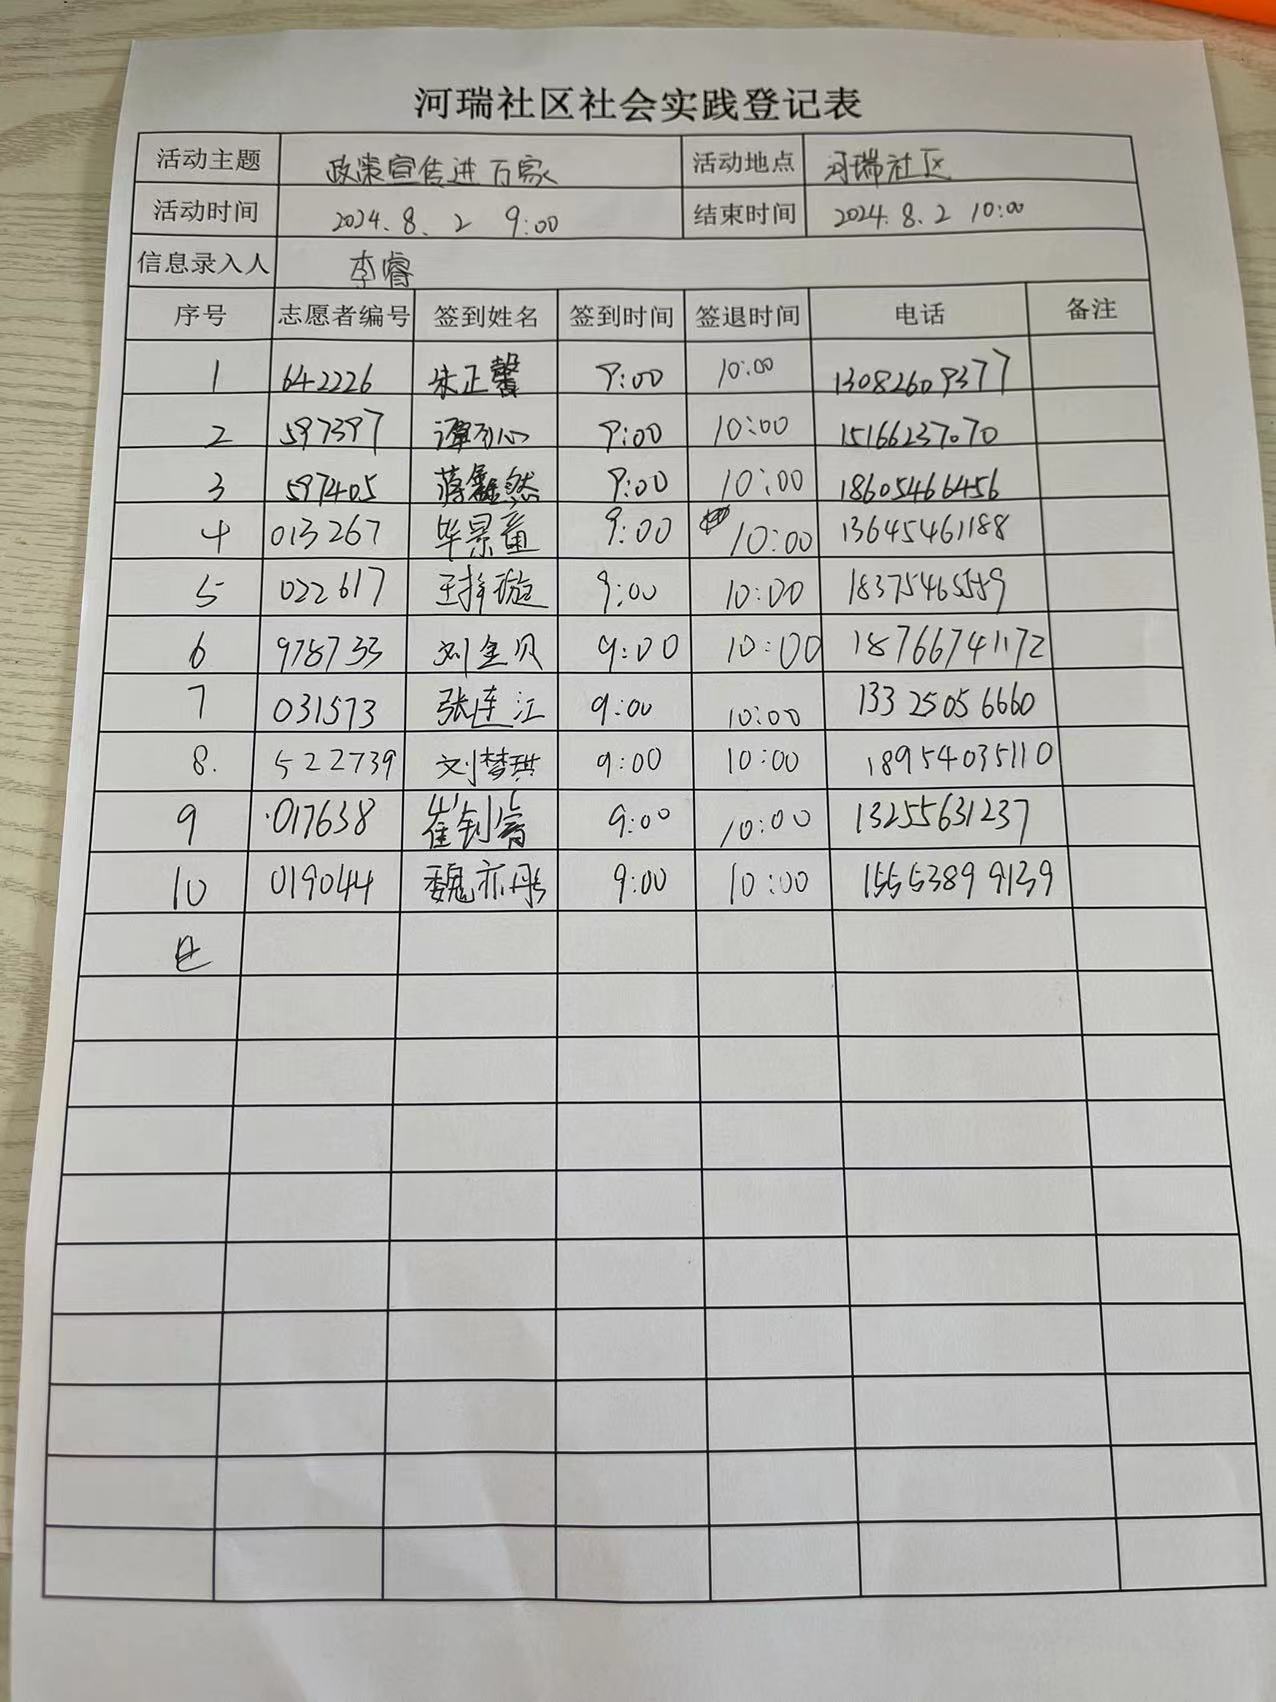 河瑞社区社会实践登记表
活动主题 政策宣传进万家 活动地点 河瑞社区
活动时间 2024.8.2 9:00 结束时间 2024.8.2 10:00
信息录入人 李睿
序号 志愿者编号 签到姓名 签到时间 签退时间 电话 备注
1 642226 朱正馨 9:00 10:00 13082609377
2 597397 谭 心 9:00 10:00 15166237070
3 597405 蒋鑫然 9:00 10:00 18605466456
4 013267 毕景童 9:00 10:00 13645461188
5 022617 王梓璇 9:00 10:00 18375465589
6 978733 刘金贝 9:00 10:00 18766741172
7 031573 张连江 9:00 10:00 13325056660
8. 522739 刘梦琪 9:00 10:00 18954035110
9 017638 崔钊 9:00 10:00 13255631237
10 019044 魏亦彤 9:00 10:00 15553899139